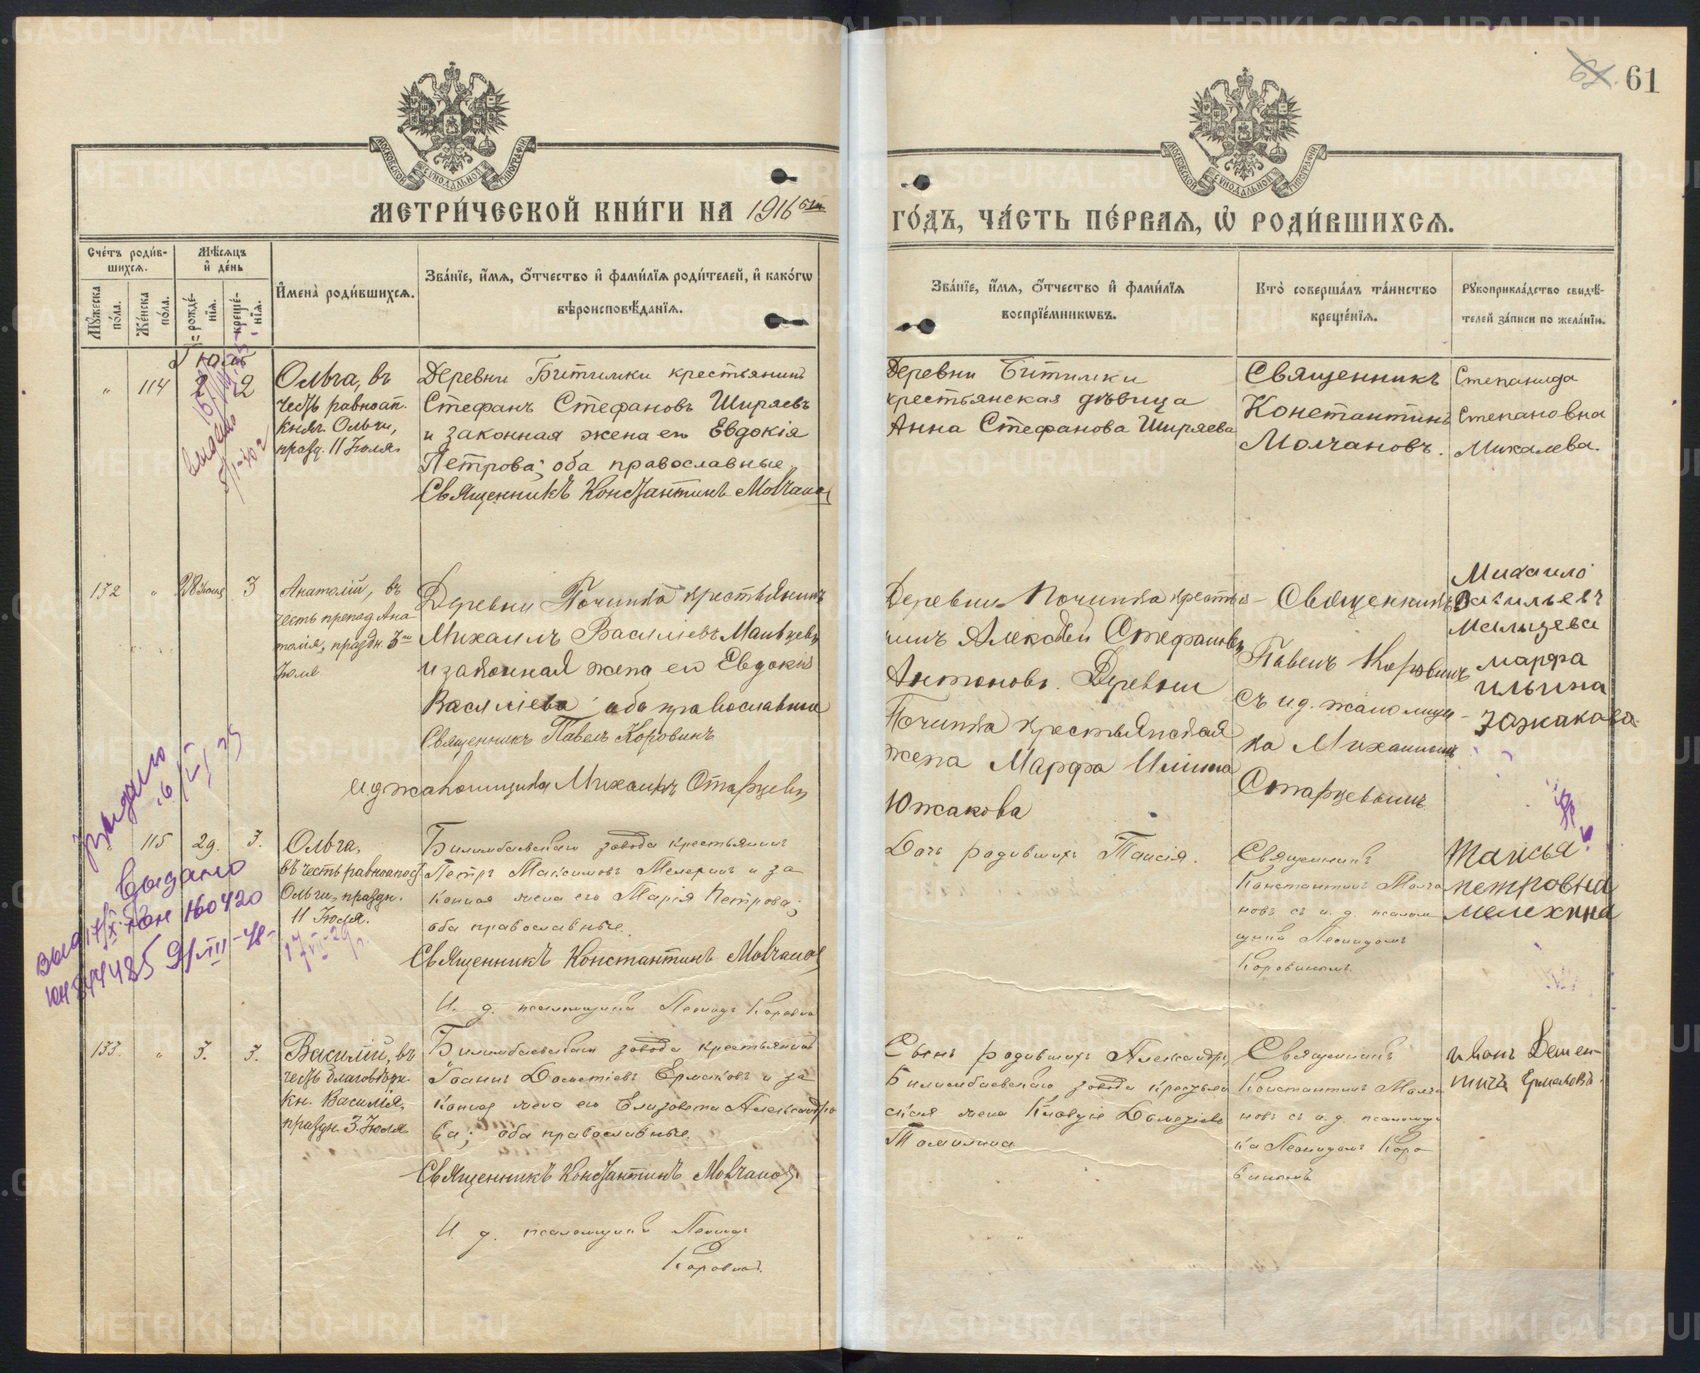 61
МЕТРИ́ЧЕСКОЙ КНИ́ГИ НА 1916
ГО́ДЪ, ЧА́СТЬ ПЕ́РВАЯ, Ѡ҆ РОДИ́ВШИХСЯ.
Сче́тъ роди́в-
шихся.
Му́жеска
по́ла.
Же́нска
по́ла.
Мѣ́сяцъ
и҆ де́нь
рожде́-
нїя.
креще́-
нїя.
И҆мена̀ роди́вшихся.
Зва́нїе, и҆́мя, ѻ҆́тчество и҆ фами́лїя роди́телей, и҆ како́гѡ
вѣроисповѣ́данїя.
Зва́нїе, и҆́мя, ѻ҆́тчество и҆ фами́лїя
воспрїе́мникѡвъ.
Кто̀ соверша́лъ та́инство
креще́нїя.
Рꙋкоприкла́дство свидѣ́-
телей за́писи по жела́нїю.
Іюль
" 114 2 2
Ольга, въ
честь равноап.
княг. Ольги,
празд. 11 Іюля.
Деревни Битимки крестьянинъ
Стефанъ Стефановъ Ширяевъ
и законная жена его Евдокія
Петрова; оба православные
Священникъ Константинъ Молчановъ
Деревни Битимки
крестьянская дѣвица
Анна Стефанова Ширяева
Священникъ
Константинъ
Молчановъ.
Степанида
Степановна
Михалева.
132 " 28 Іюня 3
Анатолій, въ
честь препод. Ана-
толія, праздн. 3го
Іюля
Деревни Починка крестьянинъ
Михаилъ Василіевъ
и законная жена его Евдокія
Василіева: оба православные
Священникъ Павелъ Коровинъ
и д псаломщика Михаилъ Старцевъ
Деревни Починка крестья-
нинъ Алексѣй Стефановъ
Антоновъ. Деревни
Починка крестьянская
жена Марфа Ильина
Южакова
Священникъ
Павелъ Коровинъ
съ и д. псаломщи-
ка Михаиломъ
Старцевымъ
Михаило
Васильевъ
марфа
ильина
южакова
115 29. 3.
Ольга,
въ честь равноапост
Ольги, праздн.
11 Іюля.
Билимбаевскаго завода крестьянинъ
Петръ Максимовъ и за
конная жена его Марія Петрова;
оба православные.
Священникъ Константинъ Молчановъ
И. д. псаломщика Леонидъ Коровин
Дочь родившихъ Таисія.
Священникъ
Константинъ Молча
новъ съ и. д. псалом
щика Леонидомъ
Коровинымъ.
Таисья
петровна
мелехина
Выдано
выдано
133. " 3. 3.
Василій, въ
честь благовѣрн.
кн. Василія,
праздн. 3 Іюля.
Билимбаевскаго завода крестьянинъ
Іоаннъ Ермаковъ и за
конная жена его Елизавета Александро
ва; оба православные.
Священникъ Константинъ Молчановъ
И. д. псаломщика Леонидъ
Коровинъ.
Сынъ родившихъ Александръ,
Билимбаевскаго завода крестьян
ская жена Клавдія
Томилина
Священникъ
Константинъ Молча
новъ съ и. д. псаломщи
ка Леонидомъ Коро
винымъ
Иванъ Демен-
тичъ Ермаковъ.
METRIKI.GASO-URAL.RU